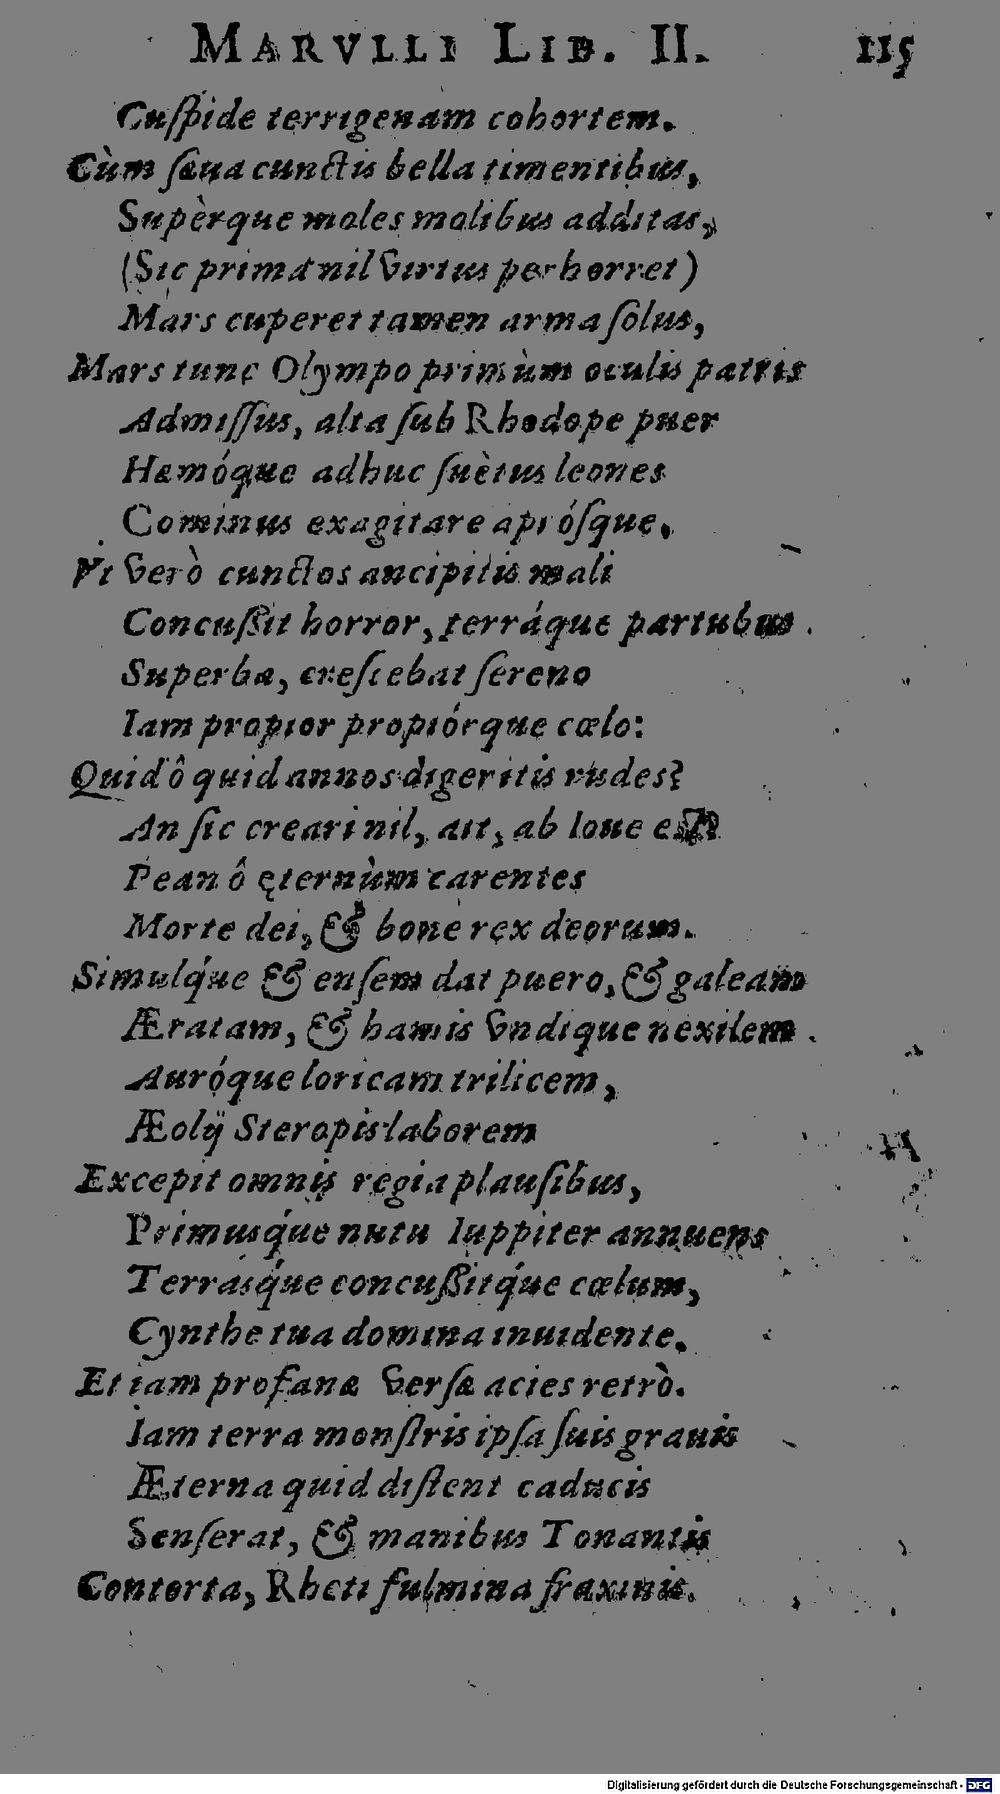 MARVLLI LIB. II. 115
Cuſpide terrigenam cohortem.
Cùm ſæua cunctis bella timentibus,
Supèrque moles molibus additas,
(Sic primæ nil virtus perhorret)
Mars cuperet tamen arma ſolus,
Mars tunc Olympo primùm oculis patris
Admiſſus, alta ſub Rhodope puer
Hæmóque adhuc ſuètus leones
Cominus exagitare apróſque.
Vt verò cunctos ancipitis mali
Concuſsit horror, terráque partubus
Superba, creſcebat ſereno
Iam propior propiórque cœlo:
Quid ô quid annos digeritis rudes?
An ſic creari nil, ait, ab Ioue eſt?
Pean ô ęternùm carentes
Morte dei, & bone rex deorum.
Simulq́ue & enſem dat puero, & galeam
Æratam, & hamis vndique nexilem
Auróque loricam trilicem,
Æolij Steropis laborem
Excepit omnis regia plauſibus,
Primusq́ue nutu Iuppiter annuens
Terrasq́ue concuſsitq́ue cœlum,
Cynthe tua domina inuidente.
Et iam profanæ verſæ acies retrò.
Iam terra monſtris ipſa ſuis grauis
Æterna quid diſtent caducis
Senſerat, & manibus Tonantis
Contorta, Rheti fulmina fraxinis.
Digitalisierung gefördert durch die Deutsche Forschungsgemeinschaft - DFG